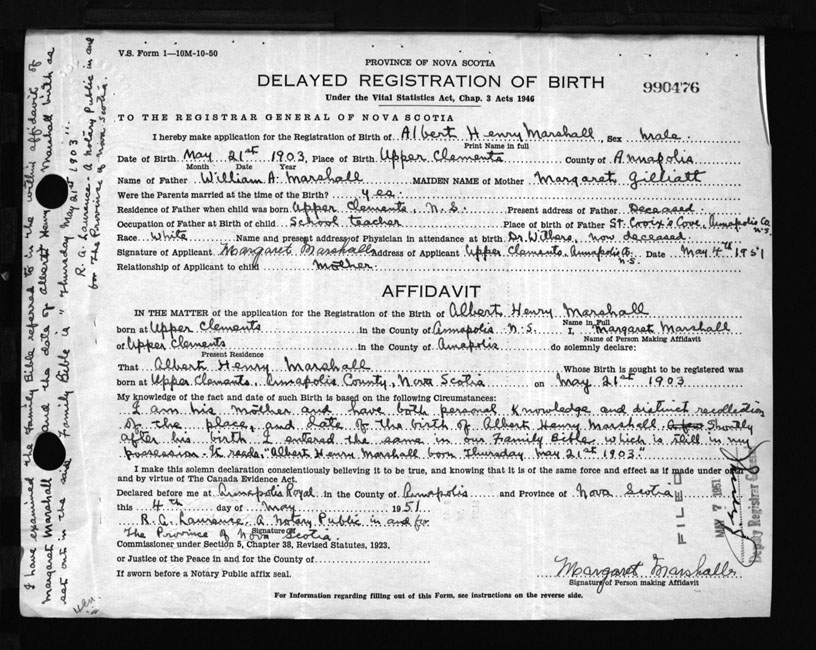 V.S. Form 1—10M-10-50
PROVINCE OF NOVA SCOTIA
DELAYED REGISTRATION OF BIRTH
990476
Under the Vital Statistics Act, Chap. 3 Acts 1946
TO THE REGISTRAR GENERAL OF NOVA SCOTIA
I hereby make application for the Registration of Birth of Albert Henry Marshall, Sex Male.
Print Name in full
Date of Birth May 21st 1903, Place of Birth Upper Clements County of Annapolis
Month Date Year
Name of Father William A. Marshall MAIDEN NAME of Mother Margaret Gilliatt
Were the Parents married at the time of the Birth? yes.
Residence of Father when child was born Upper Clements, N.S. Present address of Father Deceased.
Occupation of Father at Birth of child School teacher Place of birth of Father St. Croix's Cove, Annapolis Co. N.S.
Race White Name and present address of Physician in attendance at birth Dr. Withers, now deceased.
Signature of Applicant Margaret Marshall Address of Applicant Upper Clements, Annapolis Co. N.S. Date May 4th 1951
Relationship of Applicant to child mother.
AFFIDAVIT
IN THE MATTER of the application for the Registration of the Birth of Albert Henry Marshall
Name in Full
born at Upper Clements in the County of Annapolis N.S. I, Margaret Marshall
Name of Person Making Affidavit
of Upper Clements in the County of Annapolis do solemnly declare:
Present Residence
That Albert Henry Marshall Whose Birth is sought to be registered was
born at Upper Clements, Annapolis County, Nova Scotia on May 21st 1903
My knowledge of the fact and date of such Birth is based on the following Circumstances:
I am his mother and have both personal knowledge and distinct recollection
of the place, and date of the birth of Albert Henry Marshall Shortly
after his birth I entered the same in our Family Bible which is still in my
possession. It reads, "Albert Henry Marshall born Thursday May 21st 1903."
I make this solemn declaration conscientiously believing it to be true, and knowing that it is of the same force and effect as if made under oath
and by virtue of The Canada Evidence Act.
Declared before me at Annapolis Royal in the County of Annapolis and Province of Nova Scotia
this 4th day of May 1951
R. A. Laurence. A Notary Public in and for
Signature of
The Province of Nova Scotia.
Commissioner under Section 5, Chapter 38, Revised Statutes, 1923,
or Justice of the Peace in and for the County of
If sworn before a Notary Public affix seal.
Margaret Marshall
Signature of Person making Affidavit
For Information regarding filling out of this Form, see instructions on the reverse side.
FILED
MAY 7 1951
Deputy Registrar General
I have examined the Family Bible referred to in the within affidavit of
Margaret Marshall and the date of Albert Henry Marshall birth as
set out in the said Family Bible is "Thursday May 21st 1903".
R. A. Laurence - A Notary Public in and
for The Province of Nova Scotia.